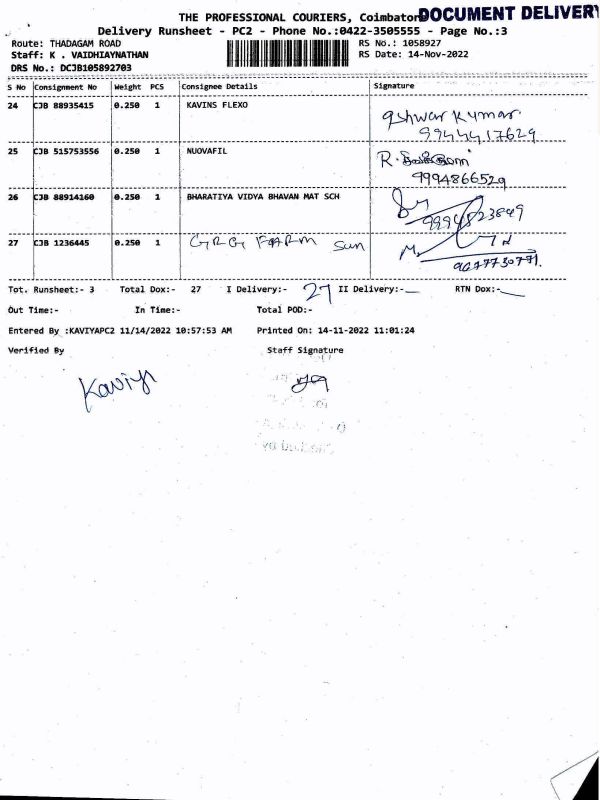 THE PROFESSIONAL COURIERS, Coimbatore
DOCUMENT DELIVERY
Delivery Runsheet - PC2 - Phone No.:0422-3505555 - Page No.:3
Route: THADAGAM ROAD RS No.: 1058927
Staff: K . VAIDHIAYNATHAN RS Date: 14-Nov-2022
DRS No.: DCJB105892703
S No Consignment No Weight PCS Consignee Details Signature
24 CJB 88935415 0.250 1 KAVINS FLEXO
9944417629
25 CJB 515753556 0.250 1 NUOVAFIL R.
9994866529
26 CJB 88914160 0.250 1 BHARATIYA VIDYA BHAVAN MAT SCH
27 CJB 1236445 0.250 1 GRG FARM Sun
Tot. Runsheet:- 3 Total Dox:- 27 I Delivery:- 27 II Delivery:- RTN Dox:-
Out Time:- In Time:- Total POD:-
Entered By :KAVIYAPC2 11/14/2022 10:57:53 AM Printed On: 14-11-2022 11:01:24
Verified By Staff Signature
Kaviya